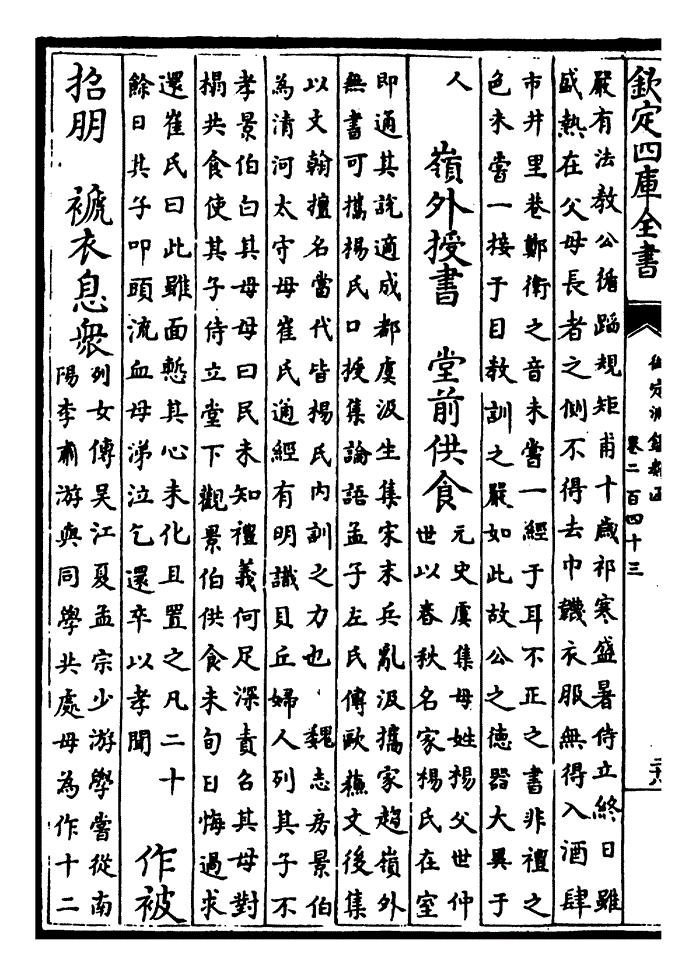 欽定四庫全書
御定淵鑑類函
卷二百四十三
嚴有法教公循蹈規矩甫十歲祁寒盛暑侍立終日雖
盛熱在父母長者之側不得去巾襪衣服無得入酒肆
市井里巷鄭衛之音未嘗一經于耳不正之書非禮之
色未嘗一接于目教訓之嚴如此故公之徳器大異于
人
嶺外授書　堂前供食
元史虞集母姓楊父世仲
世以春秋名家楊氏在室
即通其說適成都虞汲生集宋末兵亂汲攜家趨嶺外
無書可攜楊氏口授集論語孟子左氏傳歐蘓文後集
以文翰擅名當代皆楊氏内訓之力也　魏志房景伯
為清河太守母崔氏通經有明識貝丘婦人列其子不
孝景伯白其母母曰民未知禮義何足深責召其母對
榻共食使其子侍立堂下觀景伯供食未旬日悔過求
還崔氏曰此雖面慙其心未化且置之凡二十
餘日其子叩頭流血母涕泣乞還卒以孝聞
作被
招朋　褫衣息衆
列女傳吳江夏孟宗少游學嘗從南
陽李肅游與同學共處母為作十二